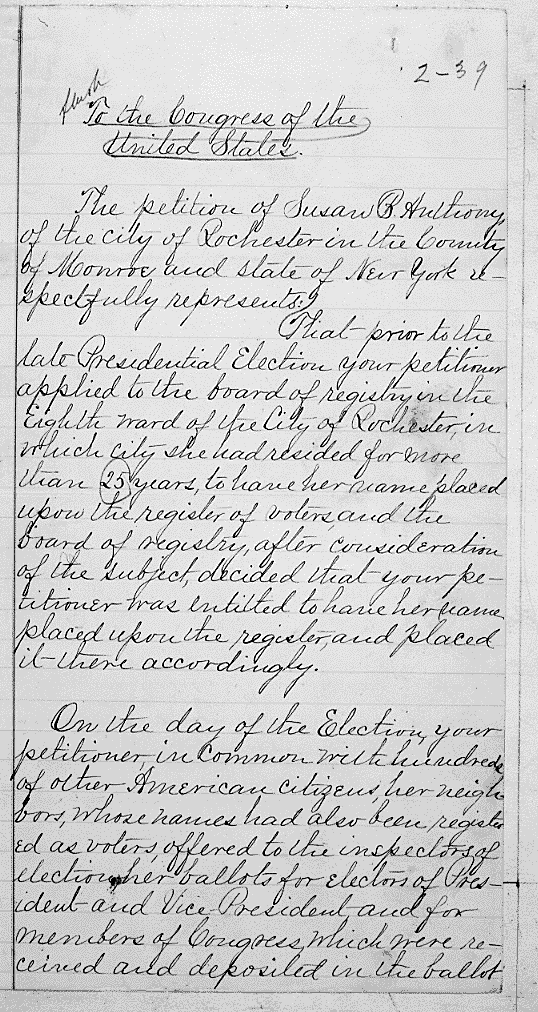 2-39
flush
To the Congress of the
United States.
The petition of Susan B Anthony,
of the city of Rochester in the County
of Monroe and state of New York re-
spectfully represents:
That prior to the
late Presidential Election your petitioner
applied to the board of registry in the
Eighth ward of the City of Rochester, in
which city she had resided for more
than 25 years, to have her name placed
upon the register of voters, and the
board of registry, after consideration
of the subject, decided that your pe-
titioner was entitled to have her name
placed upon the register, and placed
it there accordingly.
On the day of the Election, your
petitioner, in common with hundreds
of other American citizens, her neigh-
bors, whose names had also been register
ed as voters, offered to the inspectors of
election, her ballots for electors of Pres-
ident and Vice President, and for
members of Congress, which were re-
ceived and deposited in the ballot